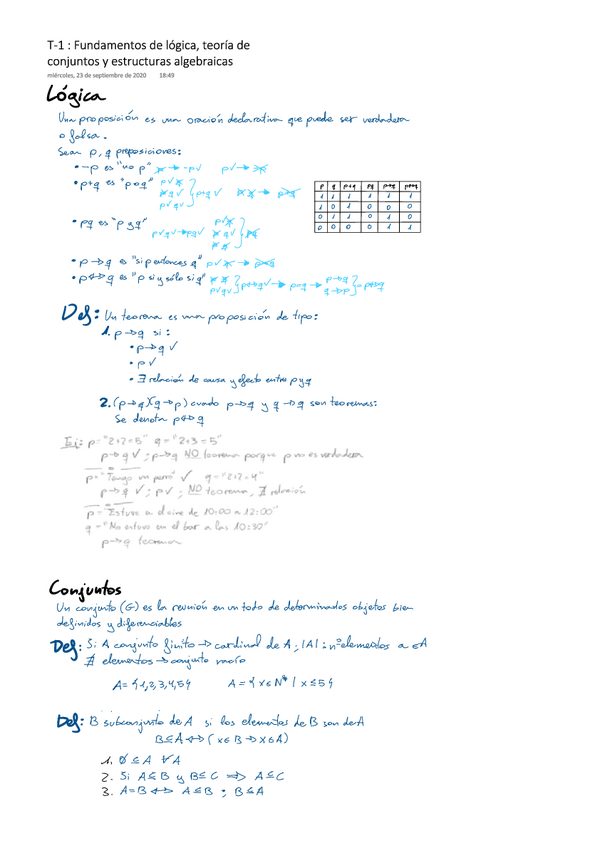 T-1 : Fundamentos de lógica, teoría de
conjuntos y estructuras algebraicas
miércoles, 23 de septiembre de 2020 18:49
Lógica
Una proposición es una oración declarativa que puede ser verdadera
o falsa.
Sean p, q preposiciones:
• ¬p es "no p"
• p+q es "p o q"
• pq es "p y q"
• p→q es "si p entonces q"
• p↔q es "p si y sólo si q"
p q p+q pq p→q p↔q
1 1 1 1 1 1
1 0 1 0 0 0
0 1 1 0 1 0
0 0 0 0 1 1
Def: Un teorema es una proposición de tipo:
1. p→q si:
• p→q ✓
• p ✓
• ∃ relación de causa y efecto entre p y q
2. (p→q)(q→p) cuando p→q y q→q son teoremas:
Se denota p↔q
Ej: p="2+2=5" q="2+3=5"
p→q ✓; p→q NO teorema porque p no es verdadera
p="Tengo un perro" ✓ q="2+2=4"
p→q ✓; p ✓; NO teorema, ∄ relación
p="Estuve a el cine de 10:00 a 12:00"
q="No estuve en el bar a las 10:30"
p→q teorema
Conjuntos
Un conjunto (G) es la reunión en un todo de determinados objetos bien
definidos y diferenciables
Def: Si A conjunto finito → cardinal de A; |A|: nº elementos a ∈A
∄ elementos → conjunto vacío
A={1,2,3,4,5} A={x∈N* | x≤5}
Def: B subconjunto de A si los elementos de B son de A
B⊆A ↔ (x∈B → x∈A)
1. ∅⊆A ∀A
2. Si A⊆B y B⊆C ⇒ A⊆C
3. A=B ↔ A⊆B ; B⊆A